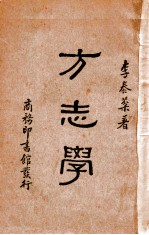 李泰棻著
方志學
商務印書館發行